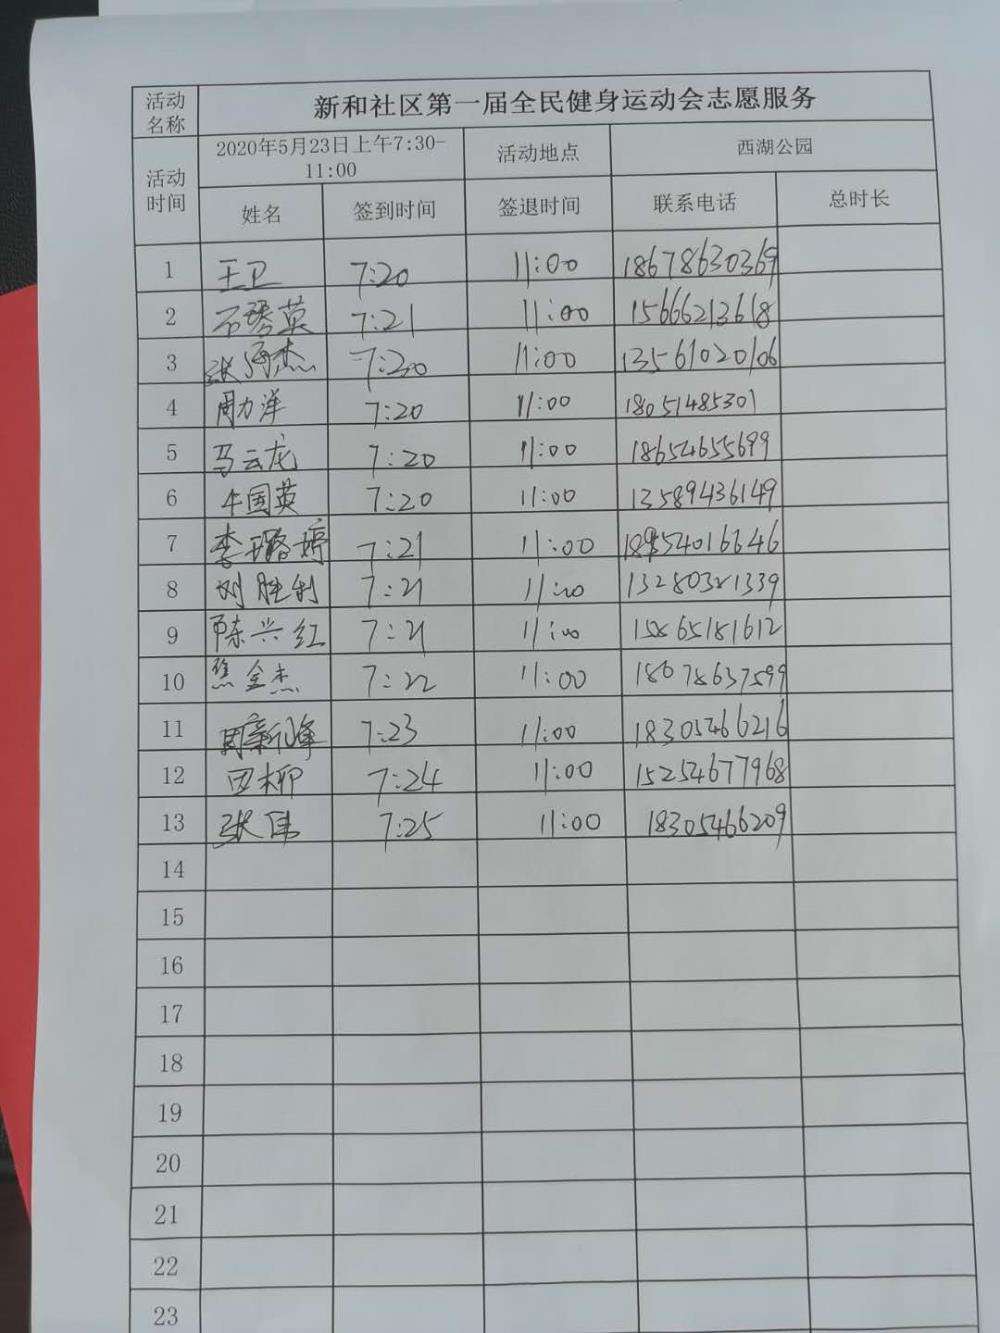 活动名称 新和社区第一届全民健身运动会志愿服务
活动时间 2020年5月23日上午7:30-11:00 活动地点 西湖公园
姓名 签到时间 签退时间 联系电话 总时长
1 王卫 7:20 11:00 18678630369
2 石秀英 7:21 11:00 15666213618
3 张海杰 7:20 11:00 13561020106
4 周力洋 7:20 11:00 18051485301
5 马云龙 7:20 11:00 18654655699
6 牛国英 7:20 11:00 13589436149
7 李璐婷 7:21 11:00
8 刘胜利 7:21 11:00 13280321339
9 陈兴红 7:21 11:00 15865181612
10 焦金杰 7:22 11:00 18678637599
11 周新峰 7:23 11:00 18305466216
12 田柳 7:24 11:00 15254677968
13 张伟 7:25 11:00 18305466209
14
15
16
17
18
19
20
21
22
23